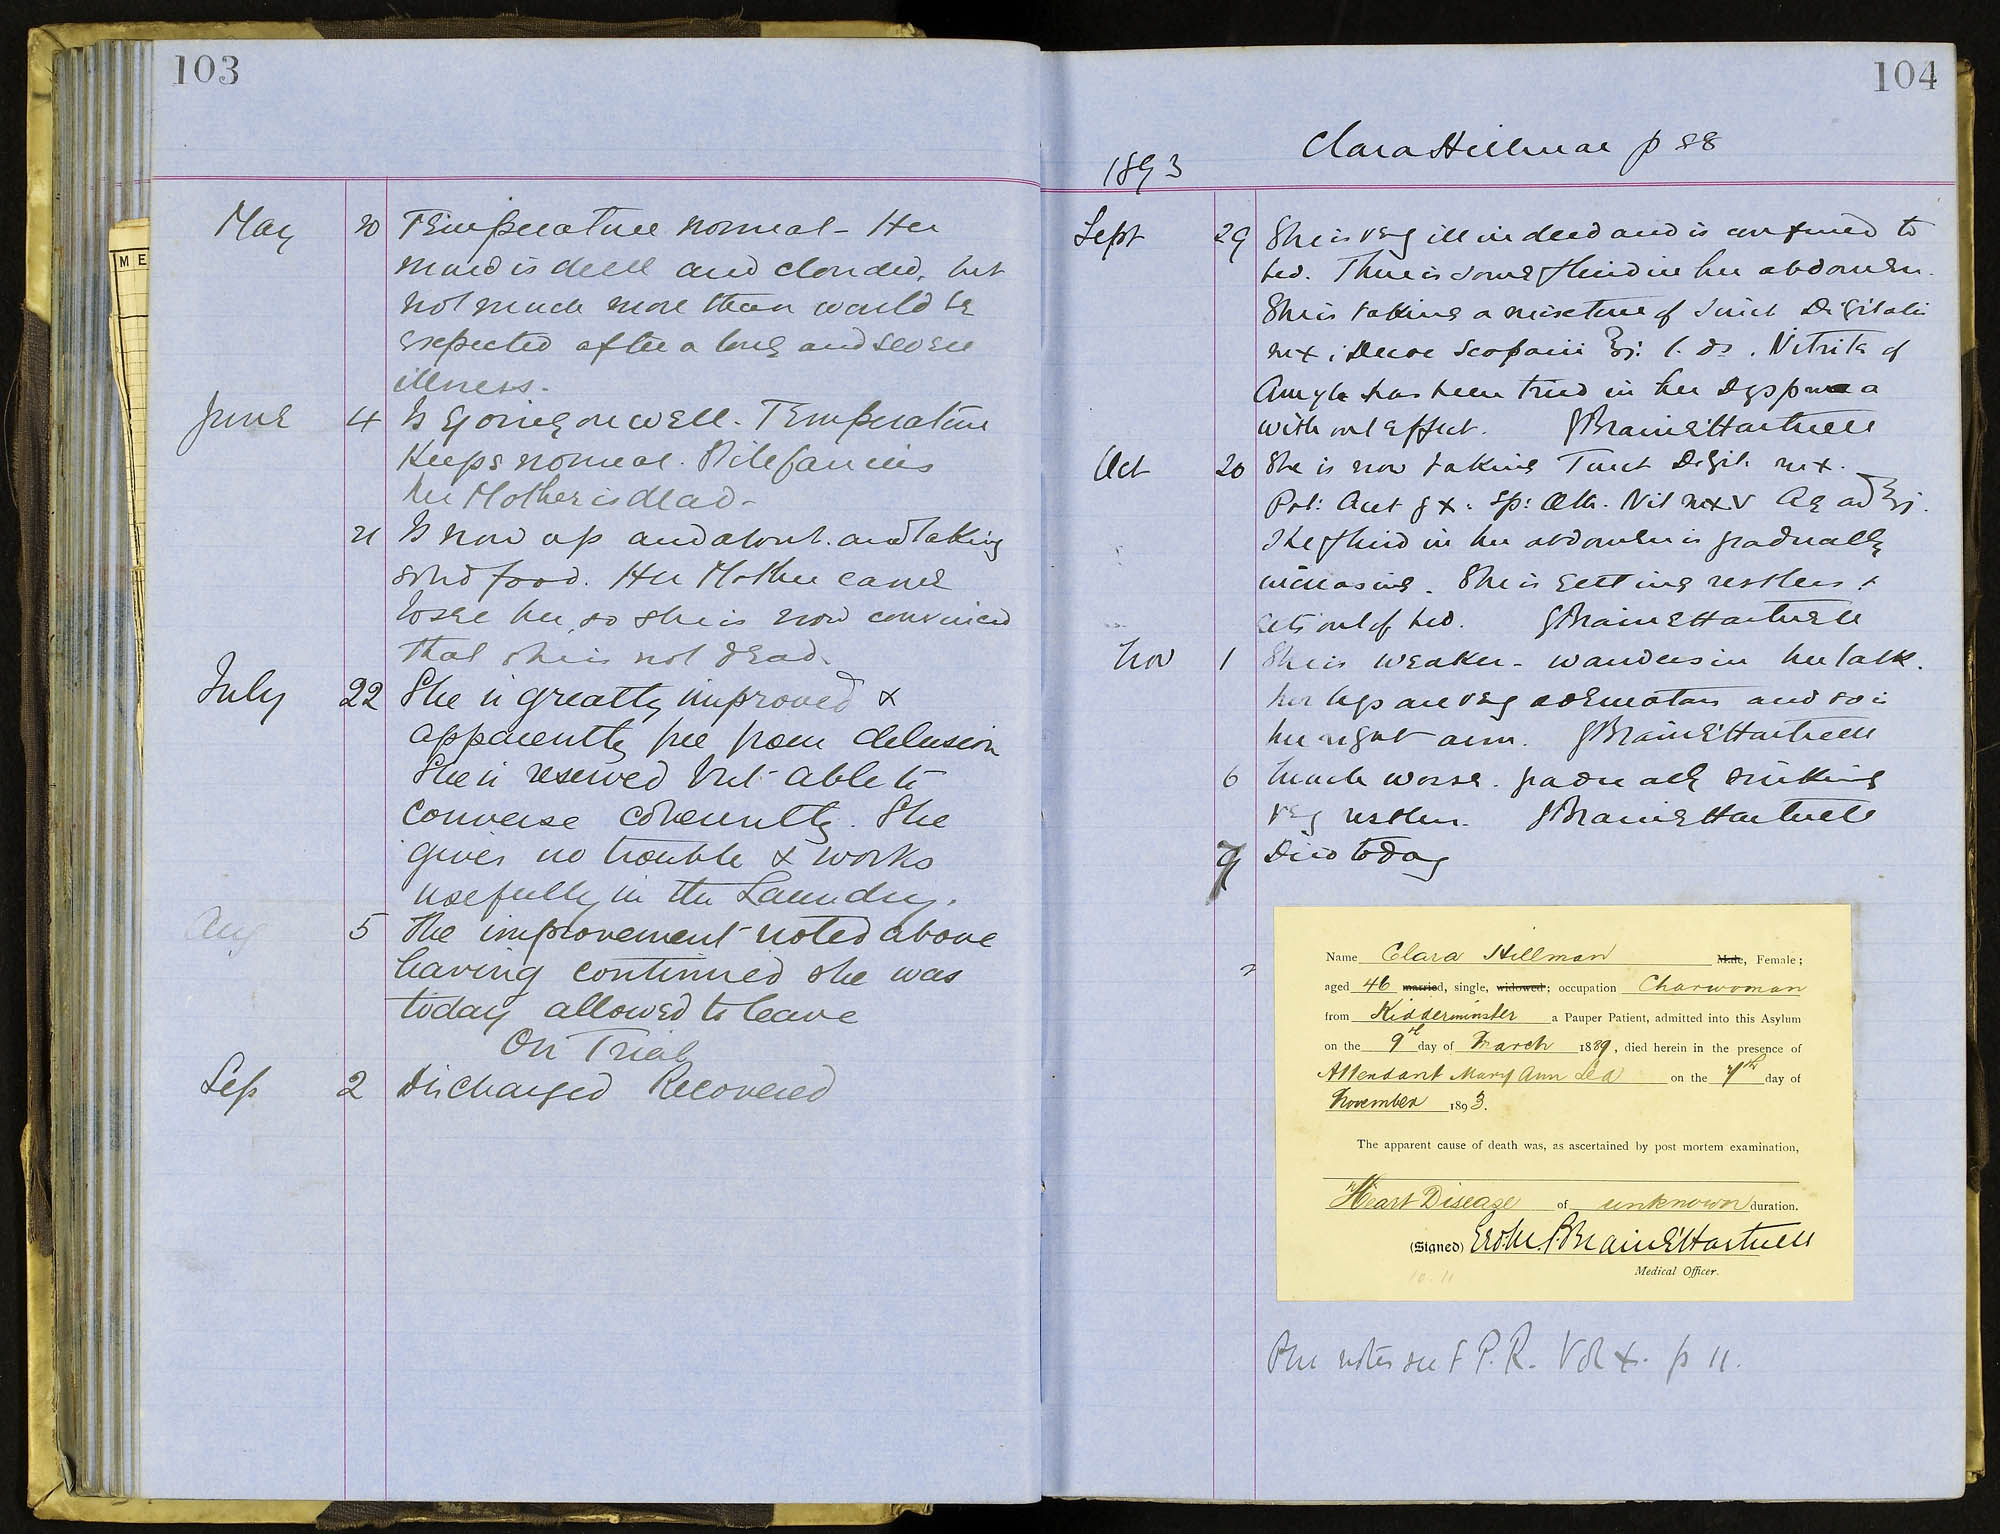 103
May 20 Temperature normal - Her
mind is dull and clouded, but
not much more than would be
expected after a long and severe
illness.
June 4 Is going on well. Temperature
keeps normal. Still fancies
her Mother is dead -
21 Is now up and about and taking
solid food. Her Mother came
to see her, so she is now convinced
that she is not dead.
July 22 She is greatly improved &
apparently free from delusion
She is reserved but able to
converse coherently. She
gives no trouble & works
usefully in the Laundry.
Aug 5 The improvement noted above
having continued she was
today allowed to leave
On Trial
Sep 2 Discharged Recovered
ME
104
Clara Hillman p 88
1893
Sept 29 She is very ill indeed and is confined to
bed. There is some fluid in her abdomen.
She is taking a mixture of Tinct Digitalis
mx Decoc Scoparii. Nitrite of
Amyl has been tried in her Dyspnoea
without effect. GBraineHartnell
Oct 20 She is now taking Tinct Digit. mx.
Pot: Acet gx. Sp: Æth. Nit mxv Aq ad
The fluid in her abdomen is gradually
increasing. She is getting restless &
gets out of bed. GBraineHartnell
Nov 1 She is weaker - wanders in her talk.
her legs are very oedematous and so is
her right arm. GBraineHartnell
6 Much worse. gradually sinking
very restless. GBraineHartnell
7 Died today
Name Clara Hillman Male, Female;
aged 46 married, single, widowed; occupation Charwoman
from Kidderminster a Pauper Patient, admitted into this Asylum
on the 9th day of March 1889, died herein in the presence of
Attendant Mary Ann Lea on the 7th day of
November 1893.
The apparent cause of death was, as ascertained by post mortem examination,
Heart Disease of unknown duration.
(Signed) BraineHartnell
Medical Officer.
P.M notes see F P.R. Vol X. p 11.